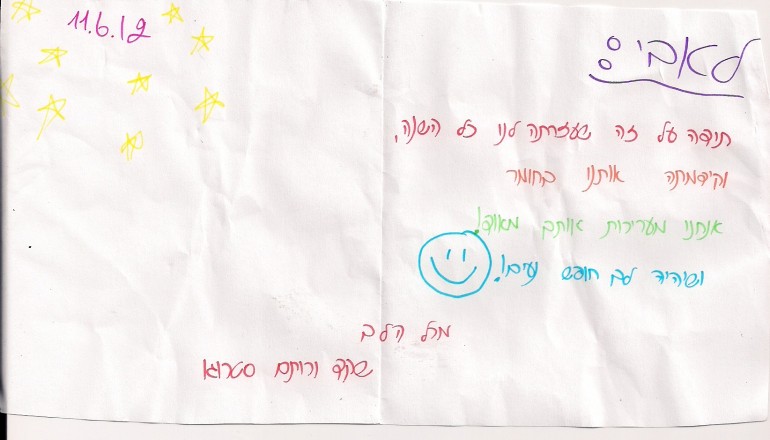 11.6.12
לאבי:
תודה על זה שעזרתה לנו כל השנה,
וקידמתה אותנו בחומר
אנחנו מעריכות אותך מאוד!
ושיהיה לך חופש נעים!
מכל הלב
שקד ורותם סטרוגו